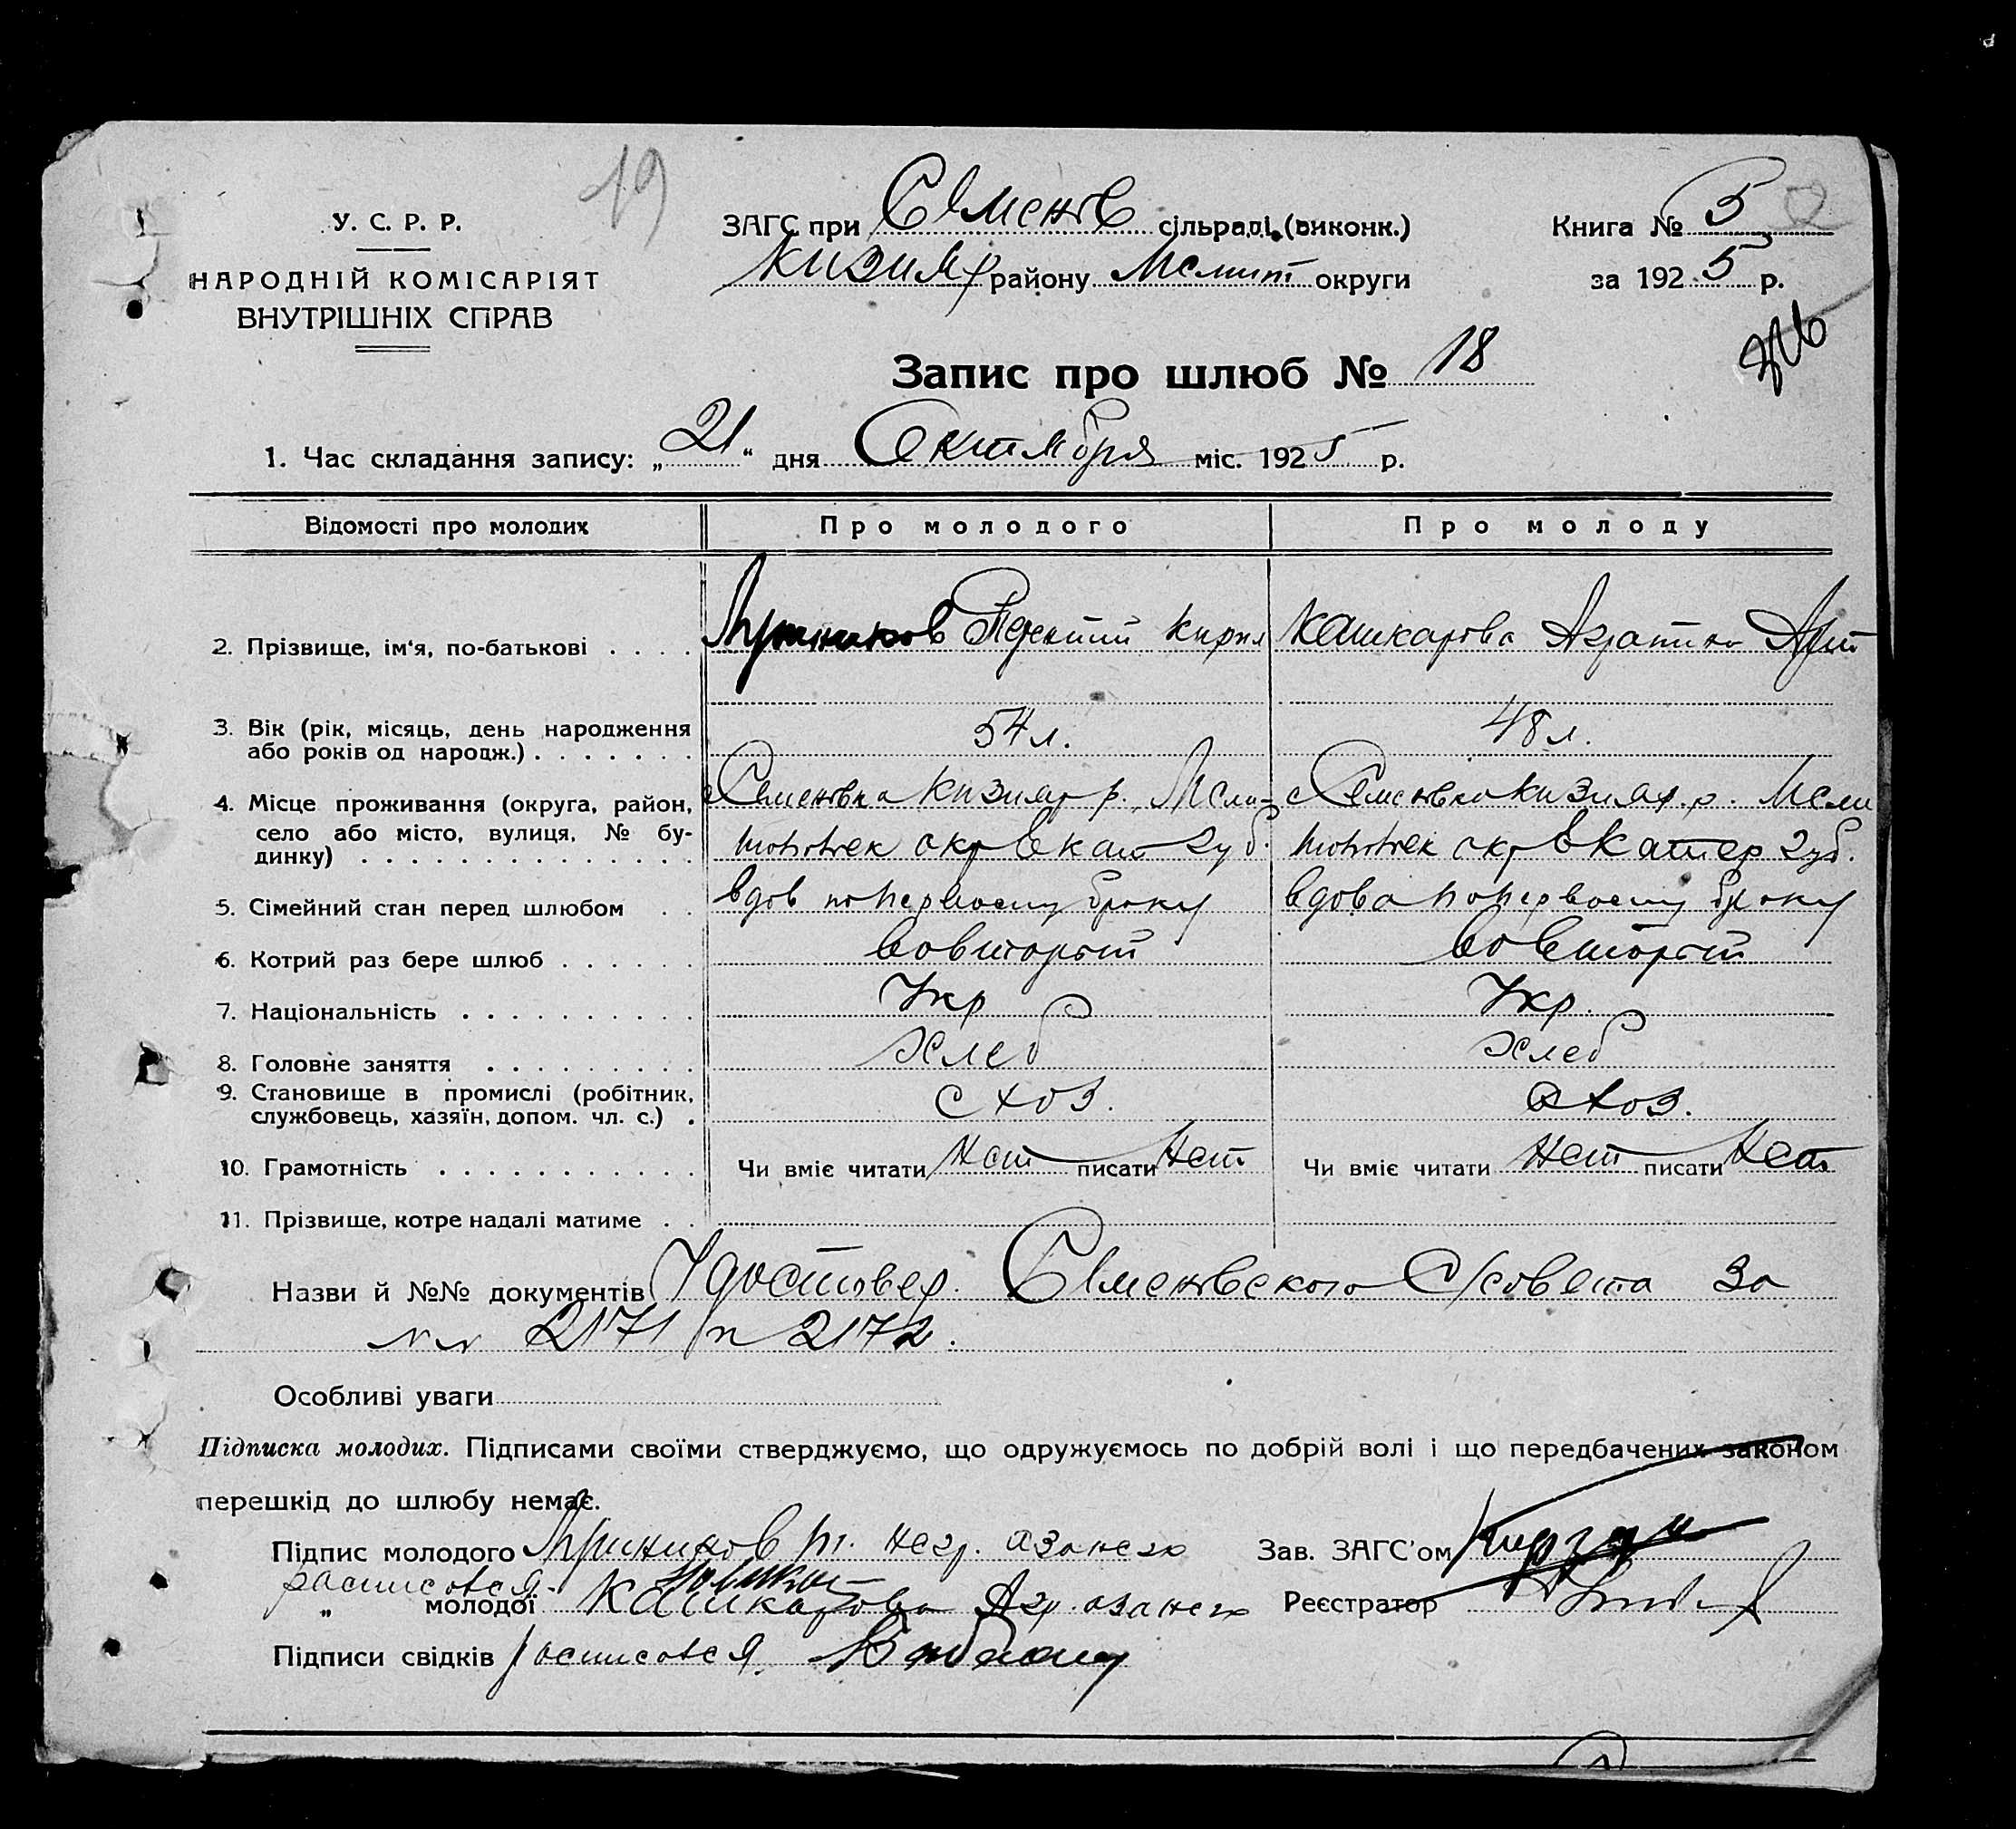 19
У. С. Р. Р.
НАРОДНІЙ КОМІСАРІЯТ
ВНУТРІШНІХ СПРАВ
ЗАГС при Семенов сільраді (виконк.)
Кизияр району Мелит округи
Книга № 3 2
за 1925 р.
Запис про шлюб № 18
1. Час складання запису: „21“ дня Октября міс. 1925 р.
Відомості про молодих Про молодого Про молоду
2. Прізвище, ім'я, по-батькові . . . . Кирил Кашкарова Агратина Арт
3. Вік (рік, місяць, день народження
або років од народж.) . . . . . . . 54 л. 48 л.
4. Місце проживання (округа, район,
село або місто, вулиця, № бу-
динку) . . . . . . . . . . . . . .
с Семеновка Кизияр р. Мели-
топольск окр Екат губ.
с Семеновка Кизияр. р. Мели
топольск окр Екатер губ.
5. Сімейний стан перед шлюбом . . вдов по первому браку вдова по первому браку
6. Котрий раз бере шлюб . . . . . . вовторый вовторый
7. Національність . . . . . . . . . . Укр Укр.
8. Головне заняття . . . . . . . . . хлеб хлеб
9. Становище в промислі (робітник,
службовець, хазяїн, допом. чл. с.) . схоз. схоз.
10. Грамотність . . . . . . . . . . . Чи вміє читати Нет писати Нет Чи вміє читати Нет писати Нет
11. Прізвище, котре надалі матиме . .
Назви й №№ документів Удостовер. Семеновского С/совета За
№№ 2171 и 2172.
Особливі уваги
Підписка молодих. Підписами своїми стверджуємо, що одружуємось по добрій волі і що передбачених законом
перешкід до шлюбу немає.
Підпис молодого негр. а за него Зав. ЗАГС'ом
расписовся
„ молодої Кашкарова Агр. а за него Реєстратор
Підписи свідків росписовся